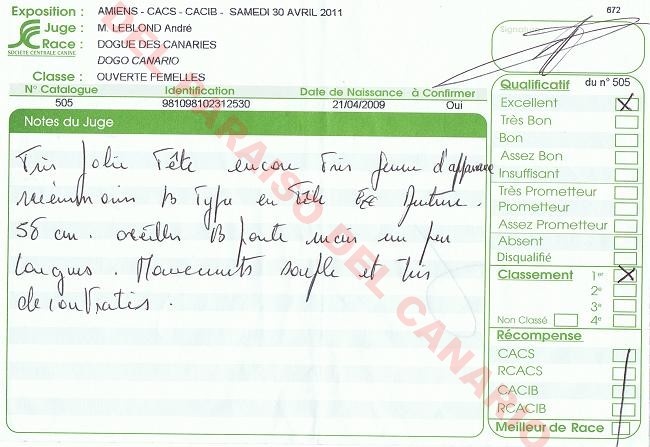 672
Exposition : AMIENS - CACS - CACIB - SAMEDI 30 AVRIL 2011
Juge : M. LEBLOND André
Race : DOGUE DES CANARIES
DOGO CANARIO
SOCIÉTÉ CENTRALE CANINE
Classe : OUVERTE FEMELLES
Signature
N° Catalogue Identification Date de Naissance à Confirmer
505 981098102312530 21/04/2009 Oui
Notes du Juge
Très jolie Tête encore Très jeune d'apparence
néanmoins B Type en Tête Exc denture.
58 cm. oreilles B porte mais un peu
longues. Mouvements souple et très
decontractés.
Qualificatif du n° 505
Excellent X
Très Bon
Bon
Assez Bon
Insuffisant
Très Prometteur
Prometteur
Assez Prometteur
Absent
Disqualifié
Classement 1er X
2e
3e
Non Classé 4e
Récompense
CACS
RCACS
CACIB
RCACIB
Meilleur de Race
DEL PARAISO DEL CANARIO